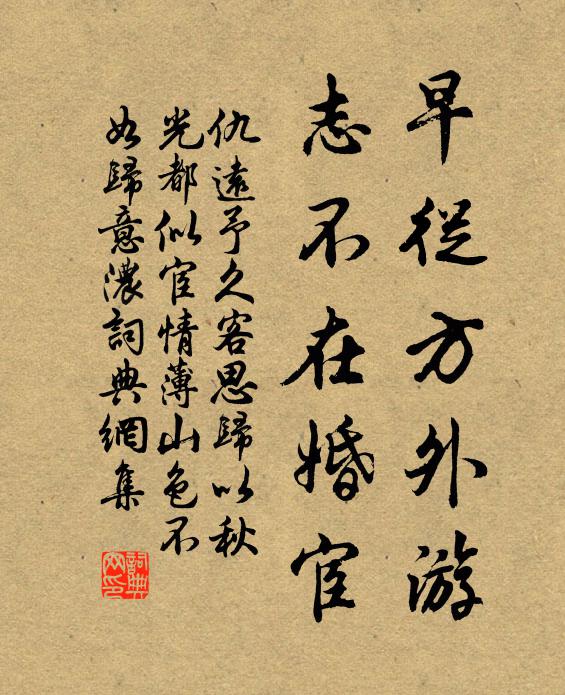 早從方外游
志不在婚宦
仇遠予久客思歸以秋
光都似宦情薄山色不
如歸意濃詞典網集
詞典网印